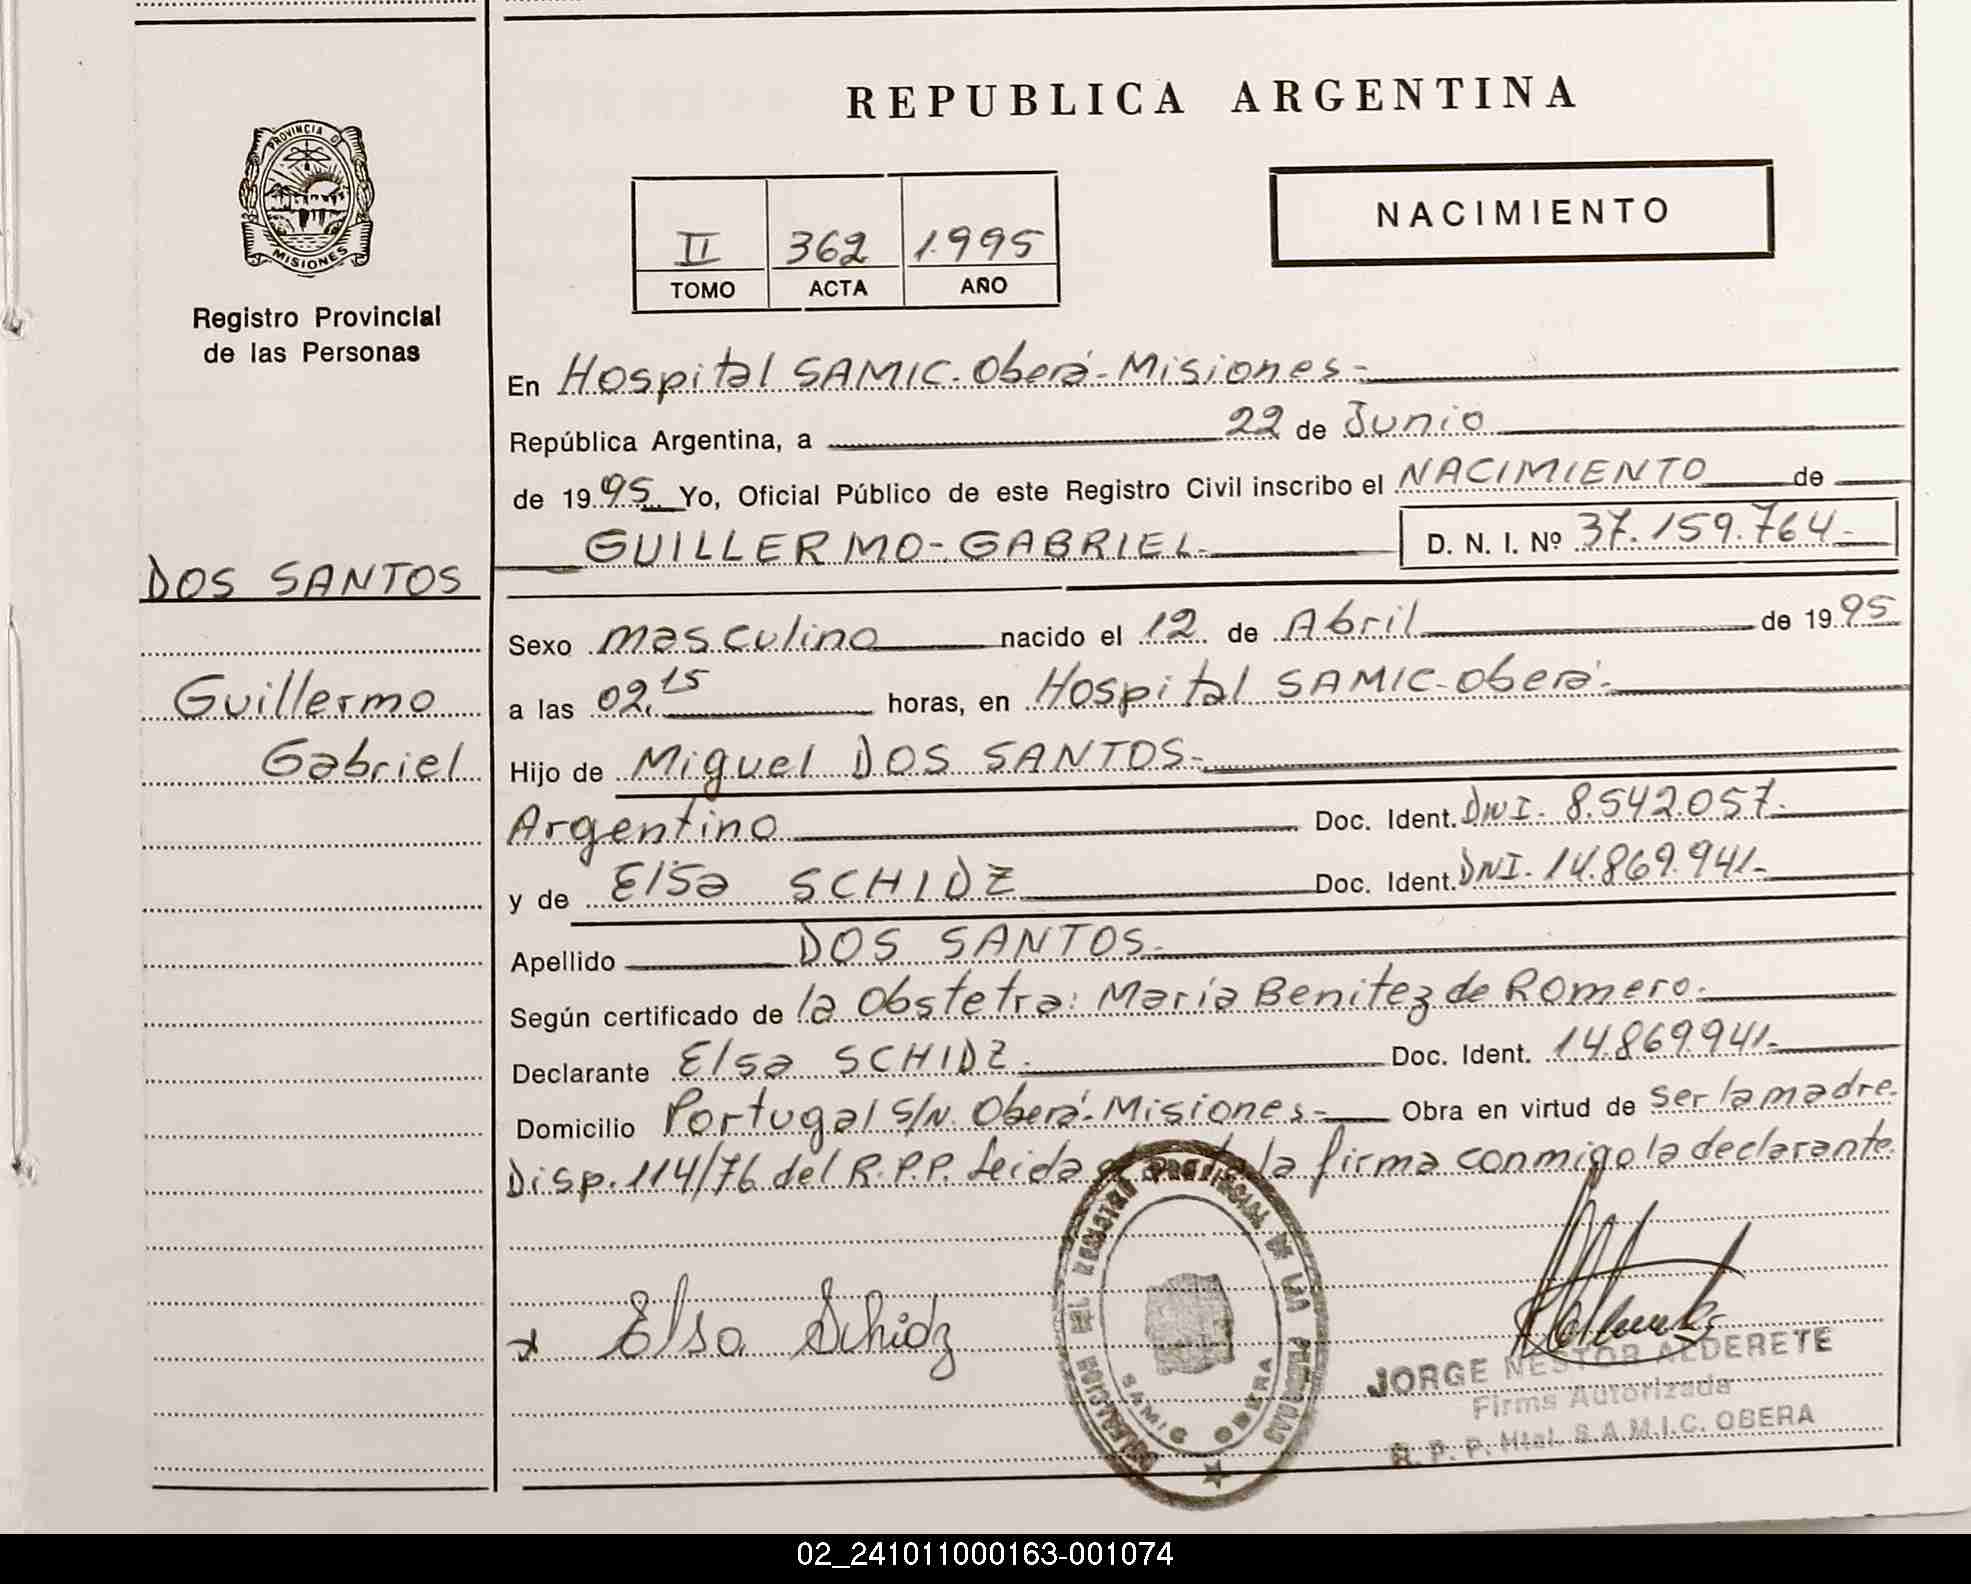 REPUBLICA ARGENTINA
PROVINCIA DE
MISIONES
Registro Provincial
de las Personas
II 362 1.995
TOMO ACTA AÑO
NACIMIENTO
DOS SANTOS
Guillermo
Gabriel
En Hospital SAMIC. Oberá - Misiones -
República Argentina, a 22 de Junio
de 1995 Yo, Oficial Público de este Registro Civil inscribo el NACIMIENTO de
GUILLERMO - GABRIEL D. N. I. Nº 37.159.764 -
Sexo masculino nacido el 12 de Abril de 1995
a las 02,15 horas, en Hospital SAMIC - Oberá -
Hijo de Miguel DOS SANTOS -
Argentino Doc. Ident. DNI. 8.542.057 -
y de Elsa SCHIDZ Doc. Ident. DNI. 14.869.941 -
Apellido DOS SANTOS -
Según certificado de la Obstetra: María Benitez de Romero.
Declarante Elsa SCHIDZ. Doc. Ident. 14.869.941 -
Domicilio Portugal S/N. Oberá - Misiones - Obra en virtud de ser la madre.
Disp. 114/76 del R.P.P. Leida la firma conmigo la declarante.
Elsa Schidz
DEL REGISTRO PROVINCIAL DE LAS PERSONAS
SAMIC OBERA
JORGE NESTOR ALDERETE
Firma Autorizada
R. P. P. Htal. S.A.M.I.C. OBERA
02_241011000163-001074